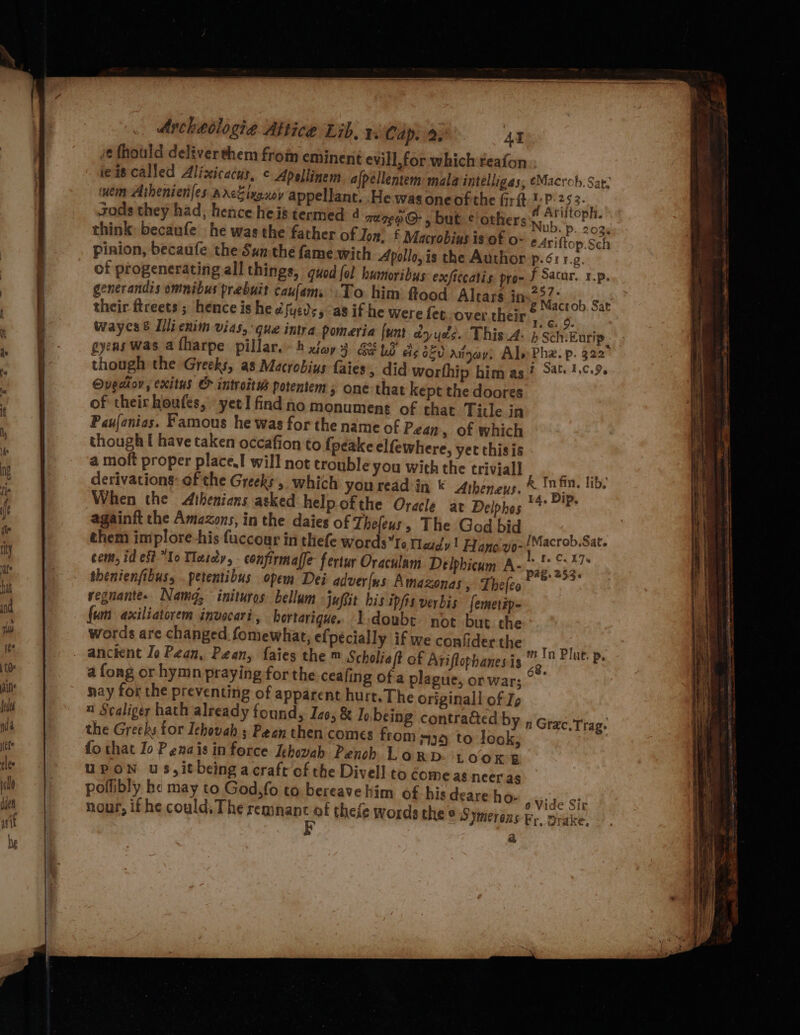 Archæologiæ Atticæ Lib. 1. Cap. 2. 41
he should deliver them from eminent evill, for which reason
is called Alixicacus, c Apellinem, aspellentem mala intelligas,
quem Athenienses appellant. He was one of the first
Gods they had, hence he is termed d but e others
think because he was the father of Ion, f Macrobius is of o-
pinion, because the Sun the same with Apollo, is the Author
of progenerating all things, quod sol humoribus exsiccatis pro-
generandis omnibus præbuit causam. To him stood Altars in
their streets; hence is he as if he were set over their
wayes g Illi enim vias, quæ intra pomeria sunt This A-
gyeus was a sharpe pillar. h
though the Greeks, as Macrobius saies, did worship him as i
exitus & introitus potentem; one that kept the doores
of their houses, yet I find no monument of that Title in
Pausanias. Famous he was for the name of Pæan, of which
though I have taken occasion to speake elsewhere, yet this is
a most proper place, I will not trouble you with the triviall
derivations of the Greeks, which you read in k Atheneus.
When the Athenians asked help of the Oracle at Delphos
against the Amazons, in the daies of Theseus, The God bid
them implore his succour in these words Hanc vo-
cem, id est confirmasse fertur Oraculum Delphicum A-
theniensibus, petentibus opem Dei adversus Amazonas, Theseo
regnante. Namq; inituros bellum jussit his ipsis verbis semetip-
sum axiliatorem invocari, hortarique. I doubt not but the
words are changed somewhat, especially if we consider the
ancient Io Pæan, Pæan, saies the m Scholiast of Aristophanes is
a song or hymn praying for the ceasing of a plague, or war;
nay for the preventing of apparent hurt. The originall of Io
n Scaliger hath already found, Iao, & Io being contracted by
the Greeks for Iehovah; Pæan then comes from to look,
so that Io Pæna is in force Iehovah Penoh LORD LOOKE
UPON us, it being a craft of the Divell to come as neer as
possibly he may to God, so to bereave him of his deare ho-
nour, if he could. The remnant of these words the o Symerons
F
a
c Macrob. Sat.
l. 1. p. 253.
d Aristoph.
Nub. p. 203.
e Aristop. Sch
p. 611. g.
f Satur. 1. p.
257.
g Macrob. Sat
1. c. 9.
h Sch. Eurip.
Phæ. p. 322
i Sat. 1. c. 9.
k In fin. lib.
14. Dip.
l Macrob. Sat.
l. 1. c. 17.
pag. 253.
m In Plut. p.
68.
n Græc. Trag.
o Vide Sir
Fr. Drake.